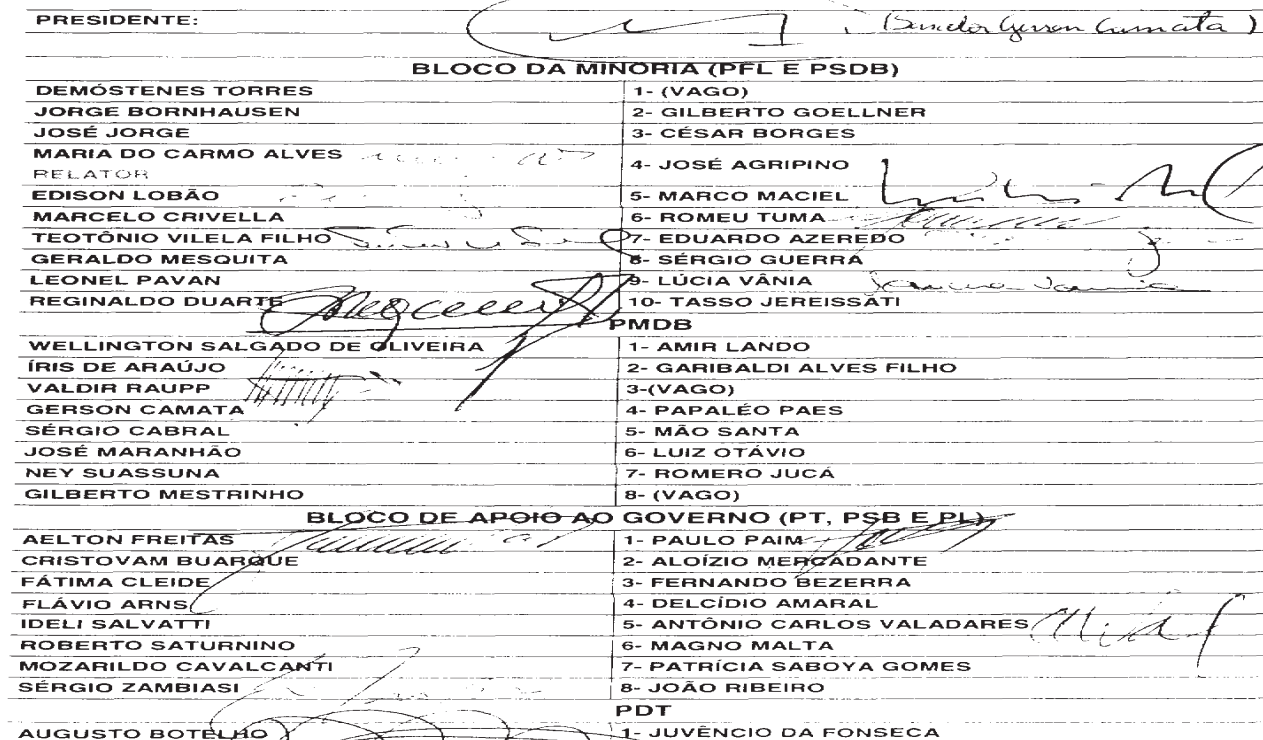 PRESIDENTE: (Senador Gerson Camata)
BLOCO DA MINORIA (PFL E PSDB)
DEMÓSTENES TORRES 1- (VAGO)
JORGE BORNHAUSEN 2- GILBERTO GOELLNER
JOSÉ JORGE 3- CÉSAR BORGES
MARIA DO CARMO ALVES 4- JOSÉ AGRIPINO
RELATOR
EDISON LOBÃO 5- MARCO MACIEL
MARCELO CRIVELLA 6- ROMEU TUMA
TEOTÔNIO VILELA FILHO 7- EDUARDO AZEREDO
GERALDO MESQUITA 8- SÉRGIO GUERRA
LEONEL PAVAN 9- LÚCIA VÂNIA
REGINALDO DUARTE 10- TASSO JEREISSATI
PMDB
WELLINGTON SALGADO DE OLIVEIRA 1- AMIR LANDO
ÍRIS DE ARAÚJO 2- GARIBALDI ALVES FILHO
VALDIR RAUPP 3-(VAGO)
GERSON CAMATA 4- PAPALÉO PAES
SÉRGIO CABRAL 5- MÃO SANTA
JOSÉ MARANHÃO 6- LUIZ OTÁVIO
NEY SUASSUNA 7- ROMERO JUCÁ
GILBERTO MESTRINHO 8- (VAGO)
BLOCO DE APOIO AO GOVERNO (PT, PSB E PL)
AELTON FREITAS 1- PAULO PAIM
CRISTOVAM BUARQUE 2- ALOÍZIO MERCADANTE
FÁTIMA CLEIDE 3- FERNANDO BEZERRA
FLÁVIO ARNS 4- DELCÍDIO AMARAL
IDELI SALVATTI 5- ANTÔNIO CARLOS VALADARES
ROBERTO SATURNINO 6- MAGNO MALTA
MOZARILDO CAVALCANTI 7- PATRÍCIA SABOYA GOMES
SÉRGIO ZAMBIASI 8- JOÃO RIBEIRO
PDT
AUGUSTO BOTELHO 1- JUVÊNCIO DA FONSECA